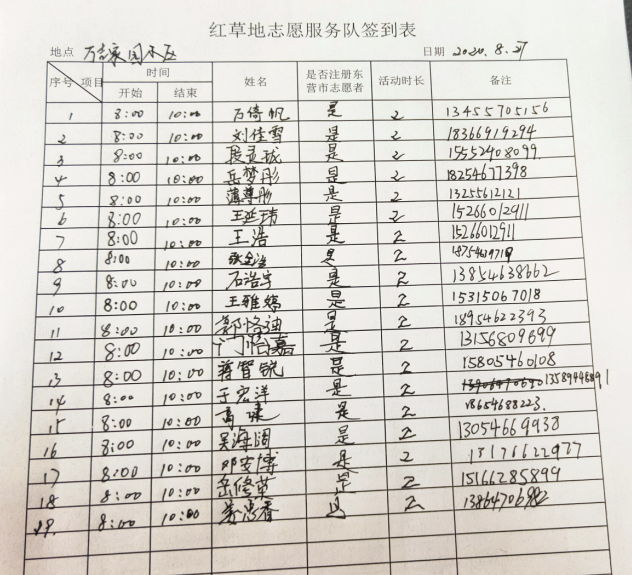 红草地志愿服务队签到表
地点 万 家园小区 日期 2020.8.27
序号 项目 时间 姓名 是否注册东营市志愿者 活动时长 备注
开始 结束
1 8:00 10:00 万倚帆 是 2 13455705156
2 8:00 10:00 刘佳雪 是 2 18366919294
3 8:00 10:00 段灵珑 是 2 15552408099
4 8:00 10:00 岳梦彤 是 2 18254677398
5 8:00 10:00 薄尊彤 是 2 13255612121
6 8:00 10:00 王延玮 是 2 15266012911
7 8:00 10:00 王浩 是 2 15266012911
8 8:00 10:00 是 2
9 8:00 10:00 石浩宇 是 2 13854638662
10 8:00 10:00 王雅婷 是 2 15315067018
11 8:00 10:00 郭恪迪 是 2 18954622393
12 8:00 10:00 门怡嘉 是 2 13156809699
13 8:00 10:00 蒋智锐 是 2 15805460108
14 8:00 10:00 于宏洋 是 2
15 8:00 10:00 高 是 2 18654688223
16 8:00 10:00 吴海阔 是 2 13054669938
17 8:00 10:00 邓安博 是 2
18 8:00 10:00 岳修英 是 2 15166285899
19 8:00 10:00 是 2